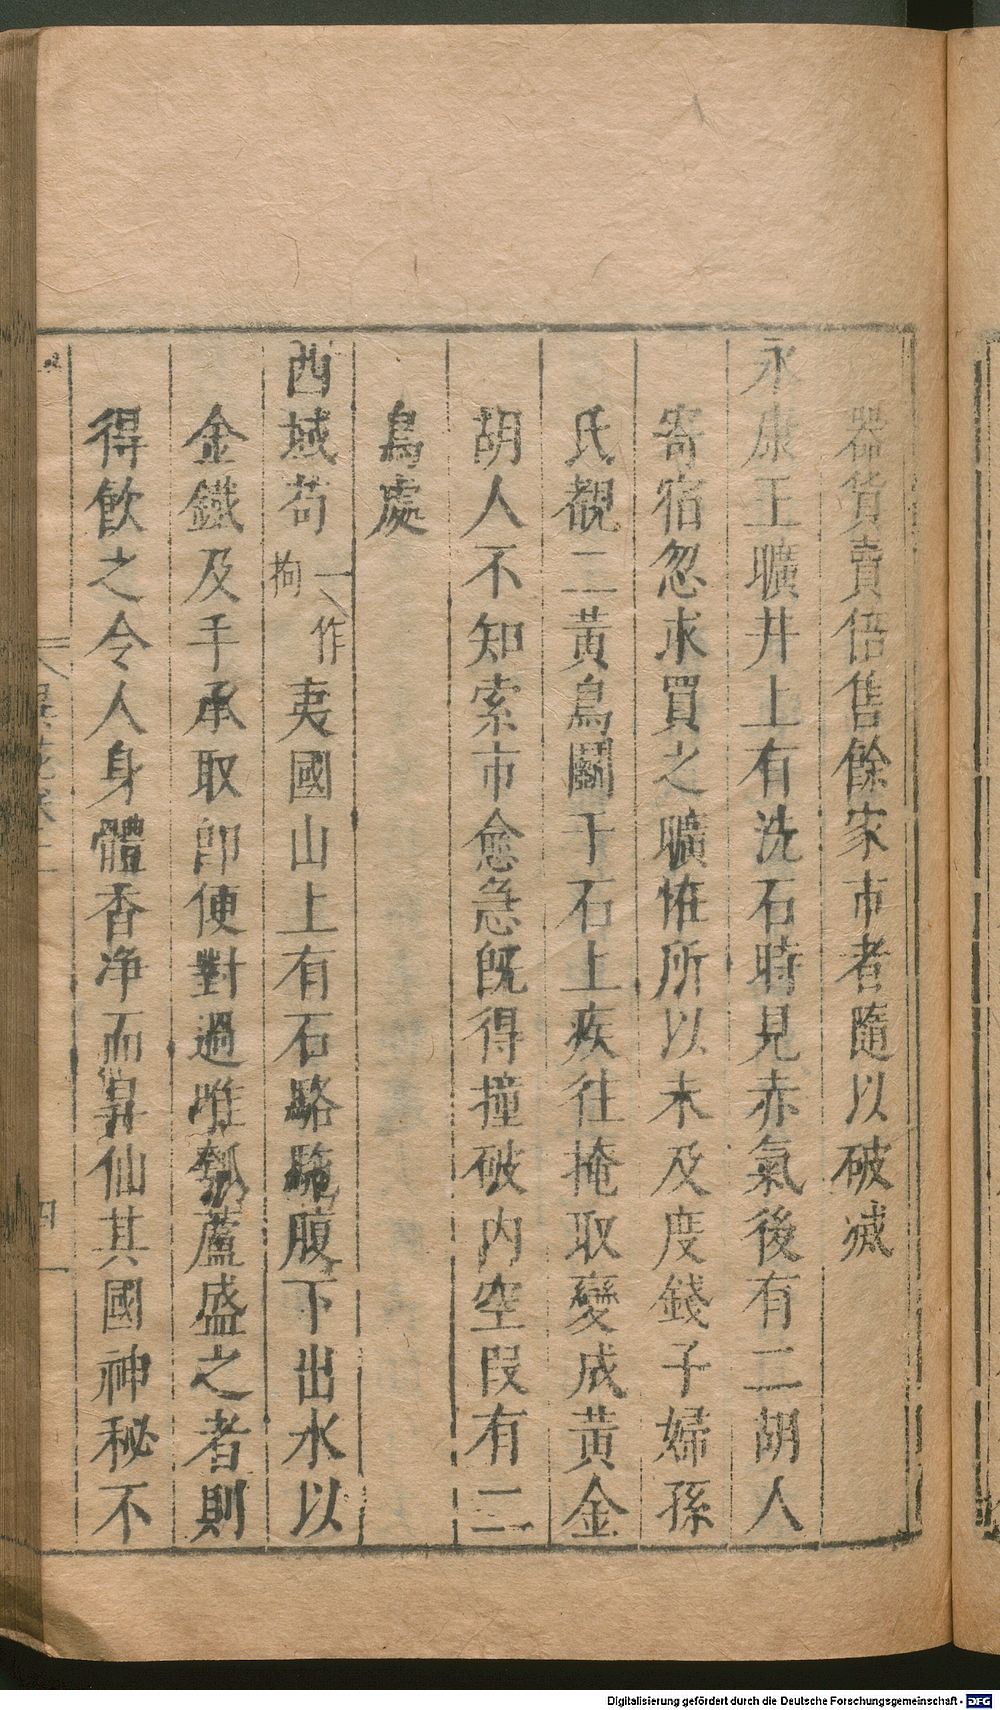 器貨賣倍售餘家市者隨以破滅
永康王曠井上有洗石時見赤氣後有二胡人
寄宿忽求買之曠恠所以未及度錢子婦孫
氏觀二黃鳥鬭于石上疾往掩取變成黃金
胡人不知索市愈急旣得撞破內空叚有二
鳥處
西域苟一作拘夷國山上有石駱駞腹下出水以
金鐵及手承取卽便對過唯瓠蘆盛之者則
得飲之令人身體香净而昇仙其國神秘不
四
Digitalisierung gefördert durch die Deutsche Forschungsgemeinschaft - DFG